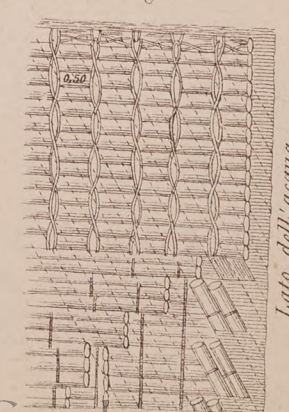 0,50
Lato dell'acqua